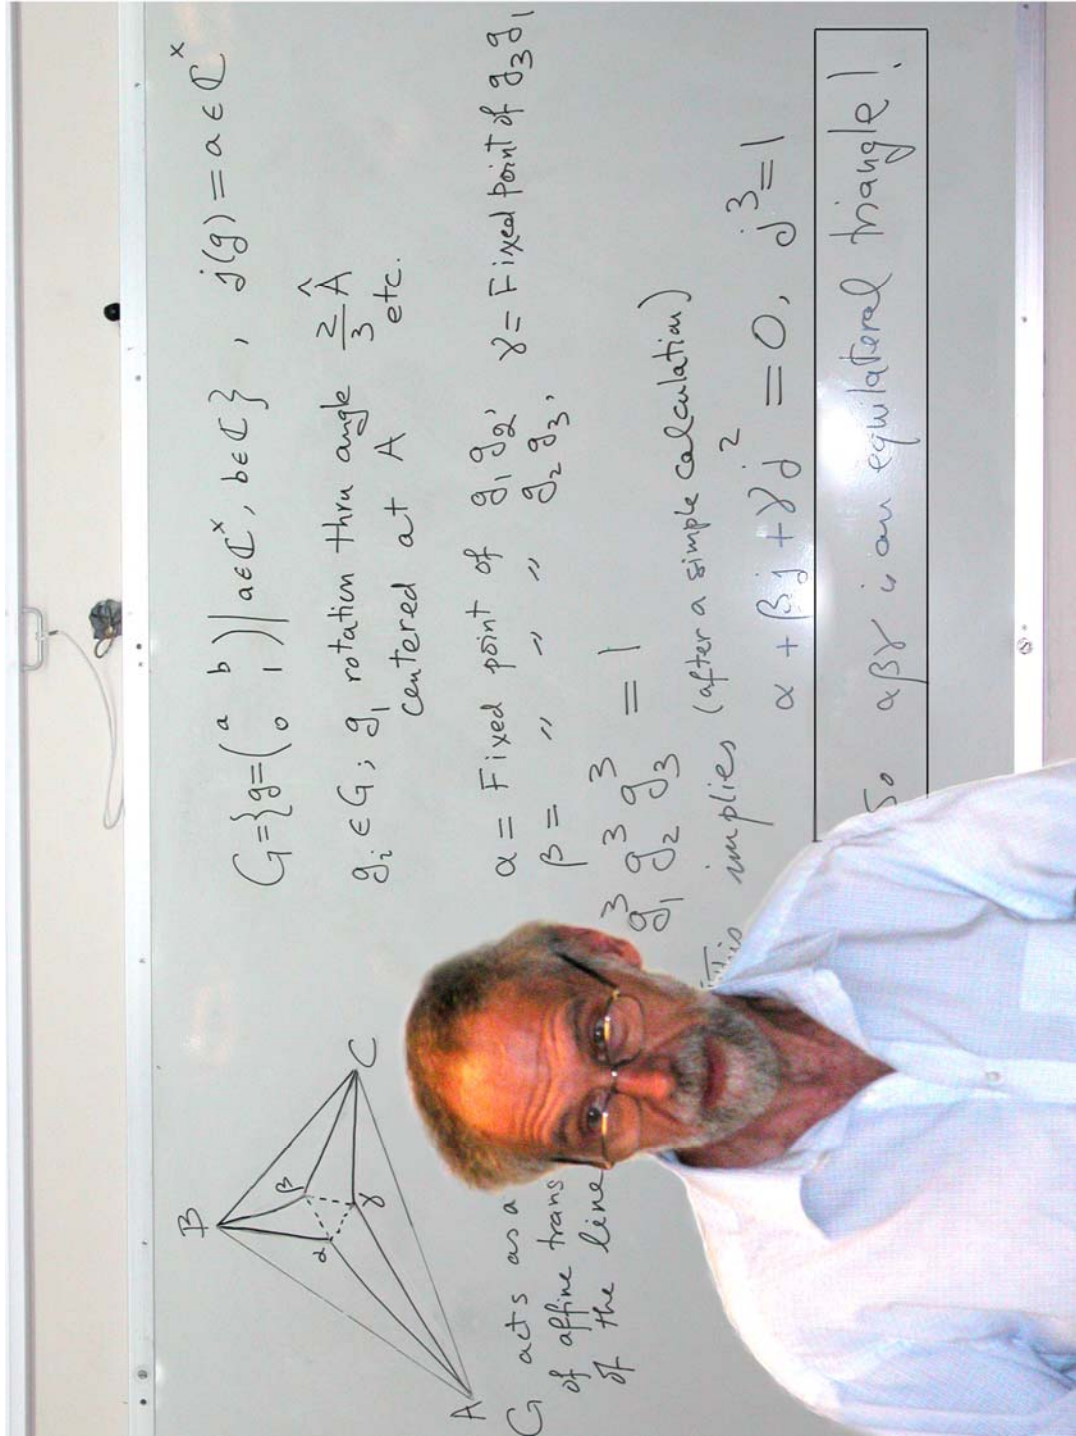 B
β
α
γ
C
A
G acts as a
of affine trans
of the line
G={g=(a b 0 1)|a∈ℂ^x, b∈ℂ}, j(g)=a∈ℂ^x
g_i∈G; g_1 rotation thru angle 2/3 Â
centered at A etc.
α= Fixed point of g_1 g_2, γ= Fixed point of g_3 g_1
β= " " " g_2 g_3,
g_1^3 g_2^3 g_3^3 = 1
This implies (after a simple calculation)
α + βj + γj^2 = 0, j^3=1
So αβγ is an equilateral triangle!